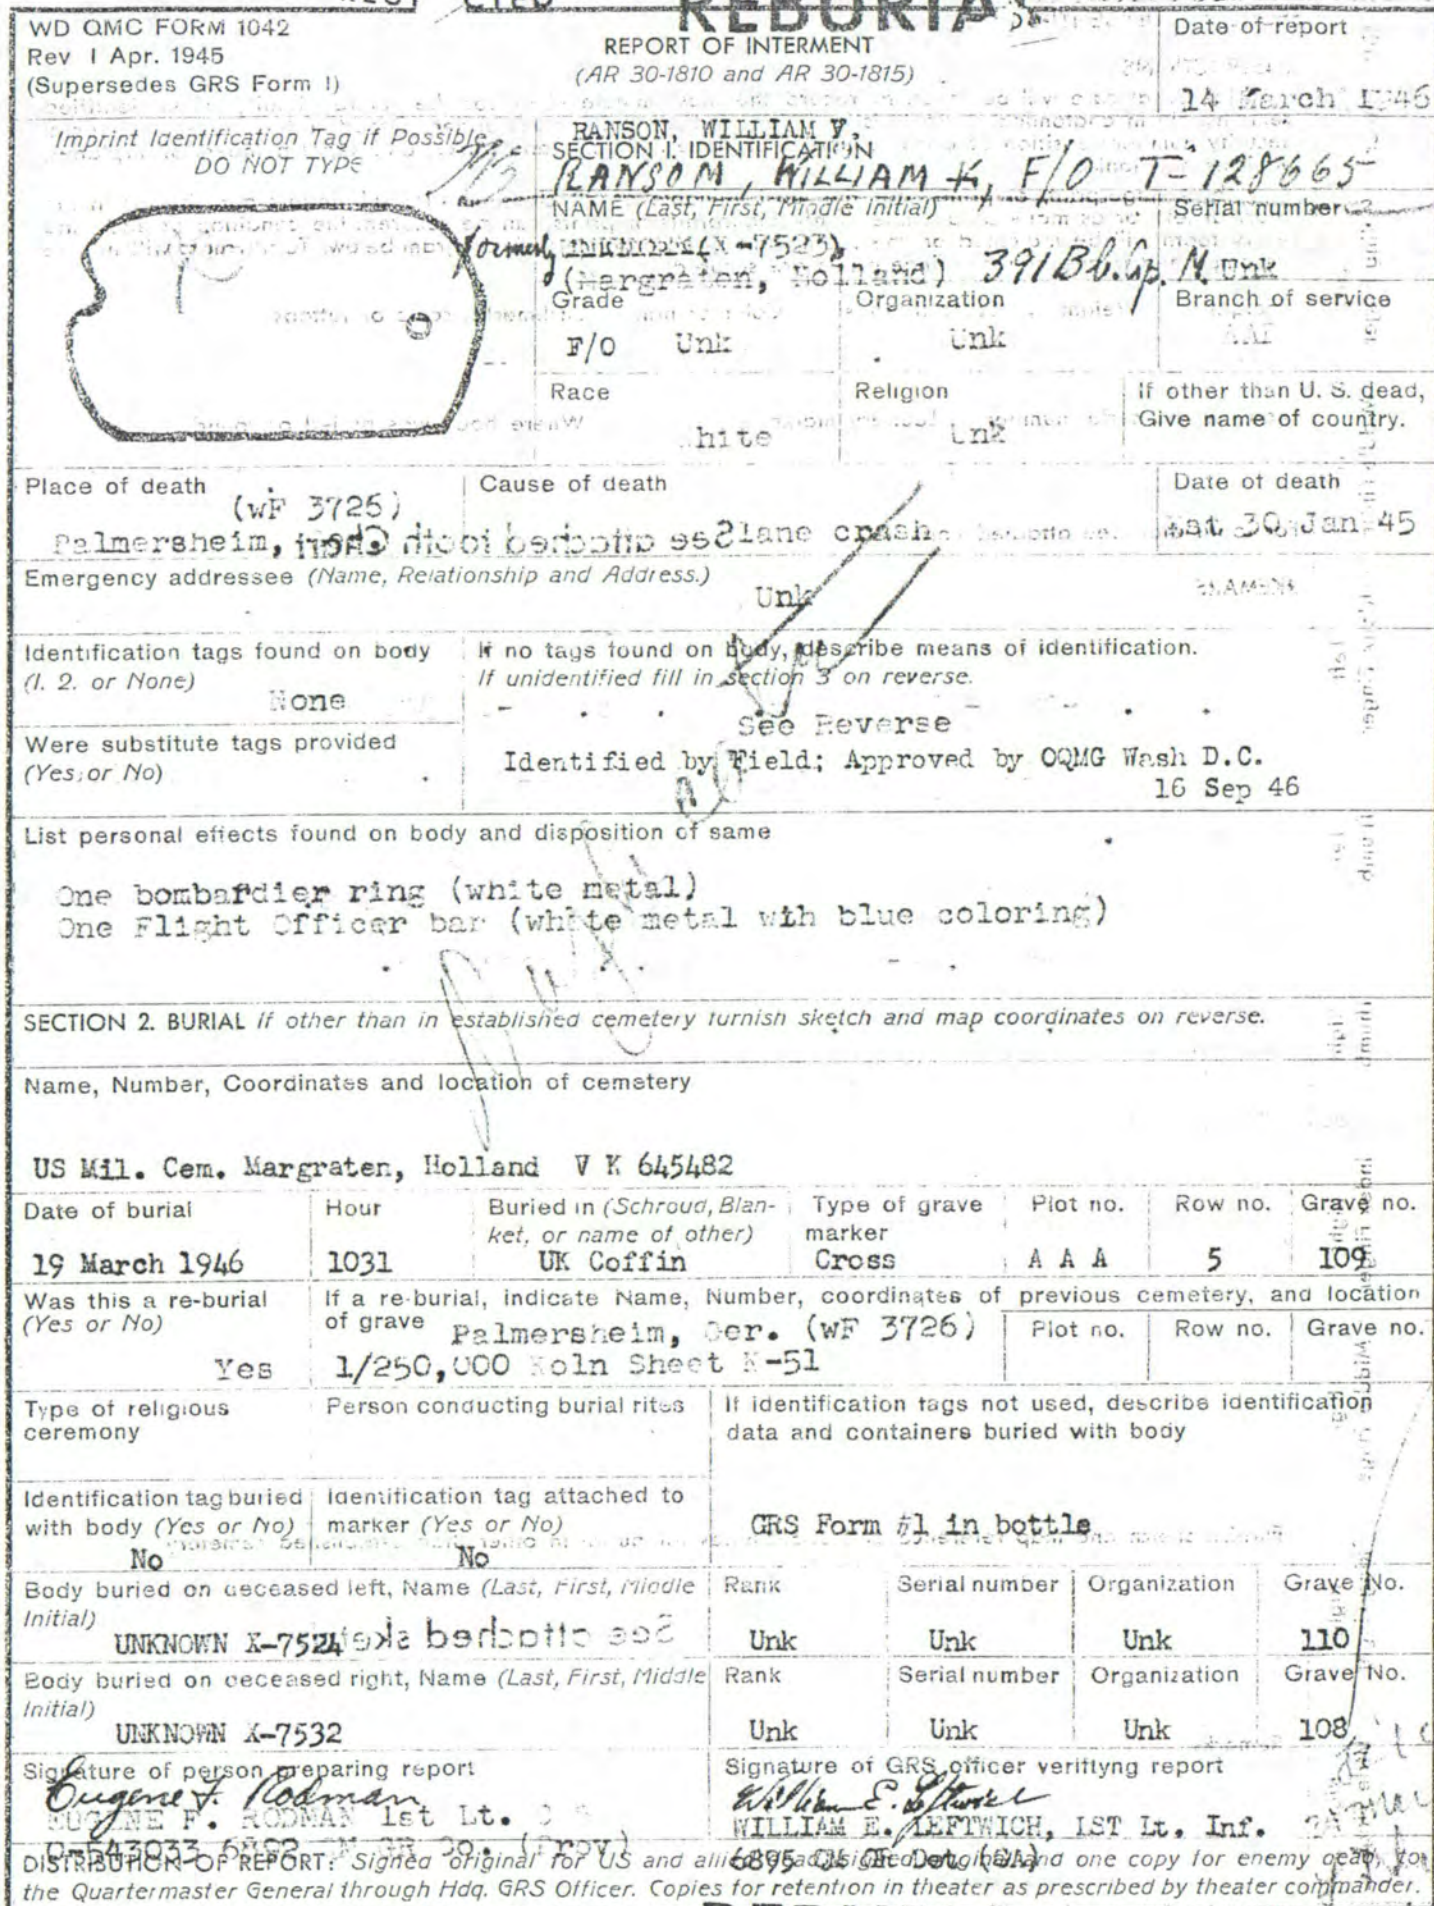 REBURIAL
WD QMC FORM 1042
Rev 1 Apr. 1945
(Supersedes GRS Form 1)
REPORT OF INTERMENT
(AR 30-1810 and AR 30-1815)
Date of report
14 March 1946
Imprint Identification Tag if Possible
DO NOT TYPE
RANSON, WILLIAM V.
SECTION 1. IDENTIFICATION
RANSOM, WILLIAM K, F/O T-128665
NAME (Last, First, Middle Initial)
Serial number
formerly UNKNOWN (X-7523)
(Margraten, Holland) 391 Bb. Gp. M. Unk
Grade
F/O Unk
Organization
Unk
Branch of service
AAF
Race
White
Religion
Unk
If other than U. S. dead,
Give name of country.
Place of death
(wF 3726)
Palmersheim,
Cause of death
Plane crash
Date of death
Est 30 Jan 45
Emergency addressee (Name, Relationship and Address.)
Unk
Identification tags found on body
(1. 2. or None)
None
If no tags found on body, describe means of identification.
If unidentified fill in section 3 on reverse.
See Reverse
Identified by Field; Approved by OQMG Wash D.C.
16 Sep 46
Were substitute tags provided
(Yes, or No)
List personal effects found on body and disposition of same
One bombardier ring (white metal)
One Flight Officer bar (white metal wth blue coloring)
SECTION 2. BURIAL if other than in established cemetery furnish sketch and map coordinates on reverse.
Name, Number, Coordinates and location of cemetery
US Mil. Cem. Margraten, Holland V K 645482
Date of burial
19 March 1946
Hour
1031
Buried in (Schroud, Blan-
ket, or name of other)
UK Coffin
Type of grave
marker
Cross
Plot no.
A A A
Row no.
5
Grave no.
109
Was this a re-burial
(Yes or No)
Yes
If a re-burial, indicate Name, Number, coordinates of previous cemetery, and location
of grave Palmersheim, Ger. (wF 3726)
1/250,000 Koln Sheet K-51
Plot no.
Row no.
Grave no.
Type of religious
ceremony
Person conducting burial rites
If identification tags not used, describe identification
data and containers buried with body
GRS Form #1 in bottle
Identification tag buried
with body (Yes or No)
No
Identification tag attached to
marker (Yes or No)
No
Body buried on deceased left, Name (Last, First, Middle
Initial)
UNKNOWN X-7524
Rank
Unk
Serial number
Unk
Organization
Unk
Grave No.
110
Body buried on deceased right, Name (Last, First, Middle
Initial)
UNKNOWN X-7532
Rank
Unk
Serial number
Unk
Organization
Unk
Grave No.
108
Signature of person preparing report
Eugene F. Rodman
EUGENE F. RODMAN 1st Lt.
Signature of GRS officer verifiyng report
William E. Leftwich
WILLIAM E. LEFTWICH, 1ST Lt. Inf.
DISTRIBUTION OF REPORT: Signed original for US and allied dead, signed original and one copy for enemy dead, to
the Quartermaster General through Hdq. GRS Officer. Copies for retention in theater as prescribed by theater commander.